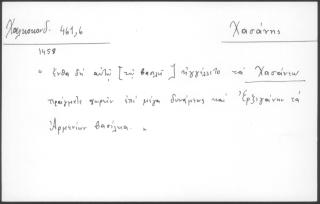 Χαλκοκονδ. 461,6 Χασάνης
1458
" ἔνθα δὴ αὐτῷ [τῷ βασιλεῖ] ἠγγέλλετο τὰ Χασάνεω
πράγματα χωρεῖν ἐπὶ μέγα δυνάμεως καὶ Ἐρζιγάνην τὰ
Ἀρμενίων βασίλεια. "